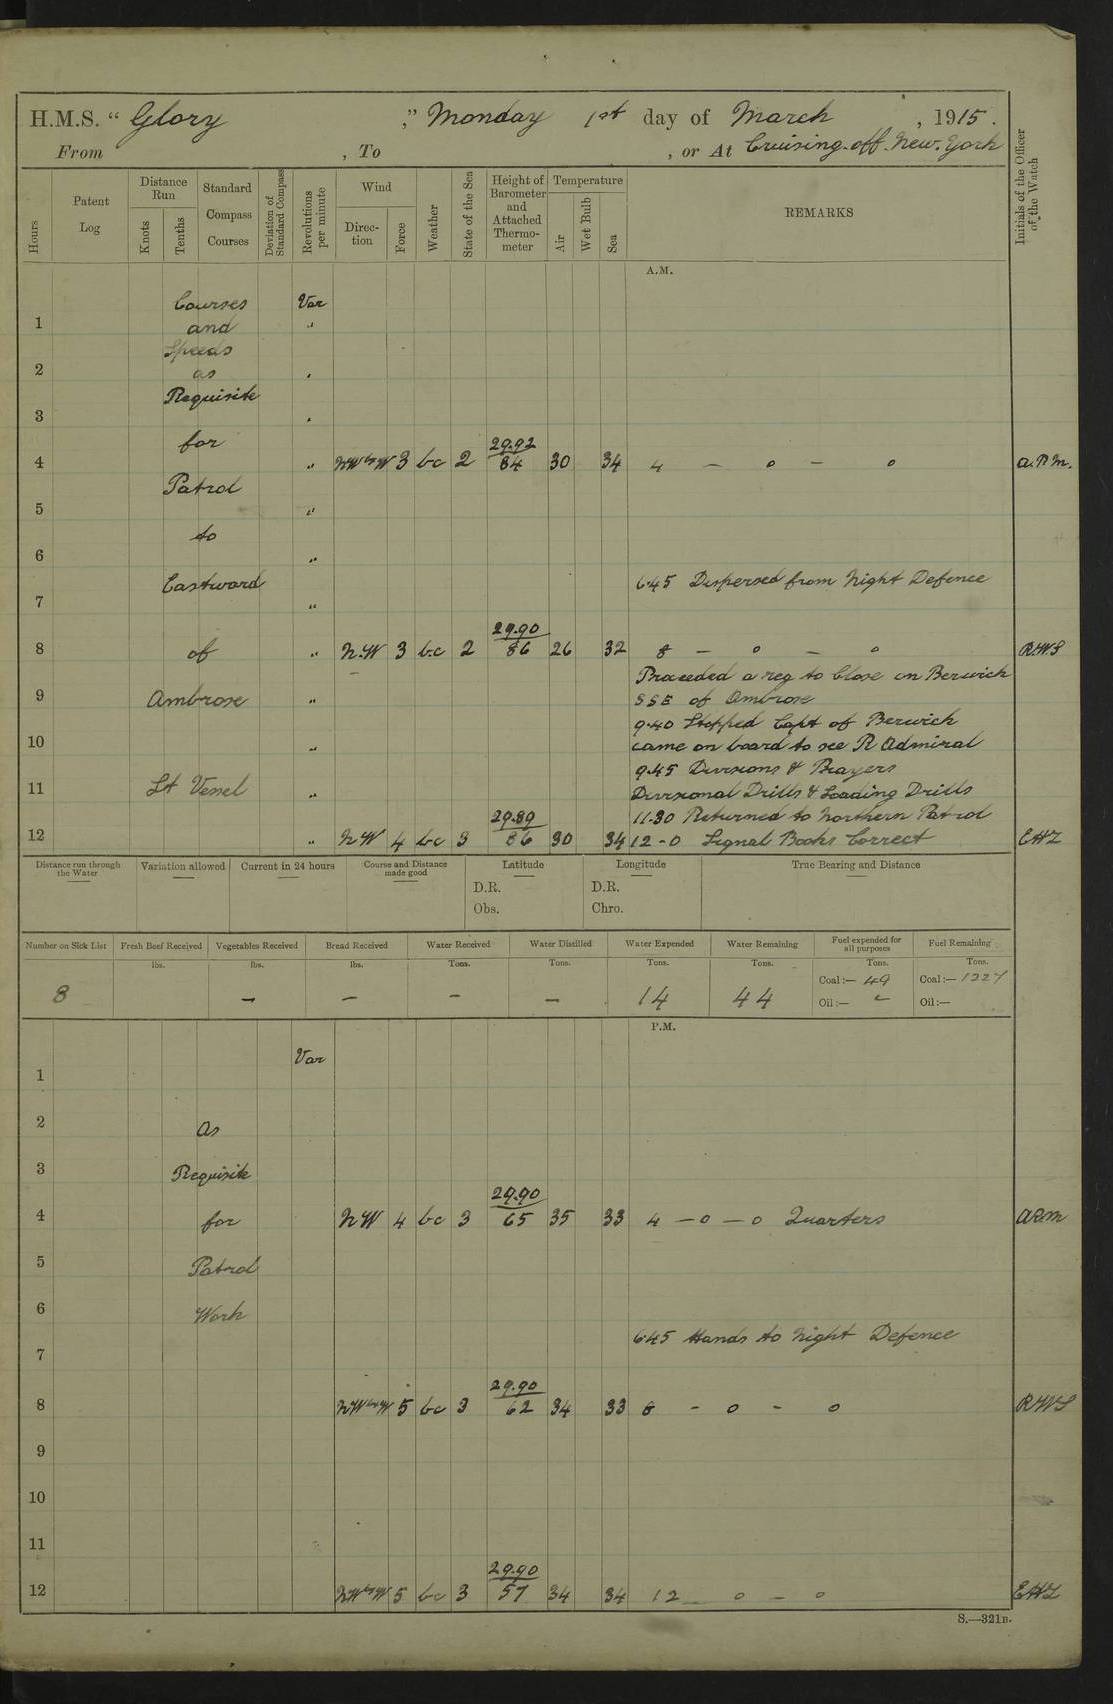 H.M.S. “ Glory ,” Monday 1st day of March , 1915.
From , To , or At Cruising off New York
Hours
Patent Log
Distance Run
Knots
Tenths
Standard Compass Courses
Deviation of Standard Compass
Revolutions per minute
Wind
Direc- tion
Force
Weather
State of the Sea
Height of Barometer and Attached Thermo- meter
Temperature
Air
Wet Bulb
Sea
REMARKS
Initials of the Officer of the Watch
A.M.
Courses Var
1 and "
Speeds
2 as "
Requisite
3 "
for 29.92
4 " NWbyW 3 bc 2 84 30 34 4 – 0 – 0 A.P.M.
Patrol
5 "
to
6 "
Eastward 6.45 Dispersed from Night Defence
7 "
29.90
8 of " N.W 3 b.c 2 86 26 32 8 – 0 – 0 R.W.S
Proceeded a req to Close on Berwick
9 Ambrose " SSE of Ambrose
9.40 Stopped Capt of Berwick
10 " came on board to see R Admiral
9.45 Divisions & Prayers
11 Lt Vessel " Divisional Drills & Loading Drills
29.89 11.30 Returned to Northern Patrol
12 " NW 4 bc 3 86 30 34 12 - 0 Signal Books Correct
Distance run through the Water
Variation allowed
Current in 24 hours
Course and Distance made good
Latitude
D.R.
Obs.
Longitude
D.R.
Chro.
True Bearing and Distance
Number on Sick List
8
Fresh Beef Received
lbs.
Vegetables Received
lbs.
–
Bread Received
lbs.
–
Water Received
Tons.
–
Water Distilled
Tons.
–
Water Expended
Tons.
14
Water Remaining
Tons.
44
Fuel expended for all purposes
Tons.
Coal:— 49
Oil:— –
Fuel Remaining
Tons.
Coal:— 1227
Oil:—
P.M.
Var
1
2 As
3 Requisite
29.90
4 for NW 4 bc 3 65 35 33 4 – 0 – 0 Quarters APM
5 Patrol
6 Work
6.45 Hands to Night Defence
7
29.90
8 NWbyW 5 bc 3 62 34 33 8 - 0 - 0 RWS
9
10
11
29.90
12 NWbyW 5 bc 3 57 34 34 12 0 – 0
S.—321B.